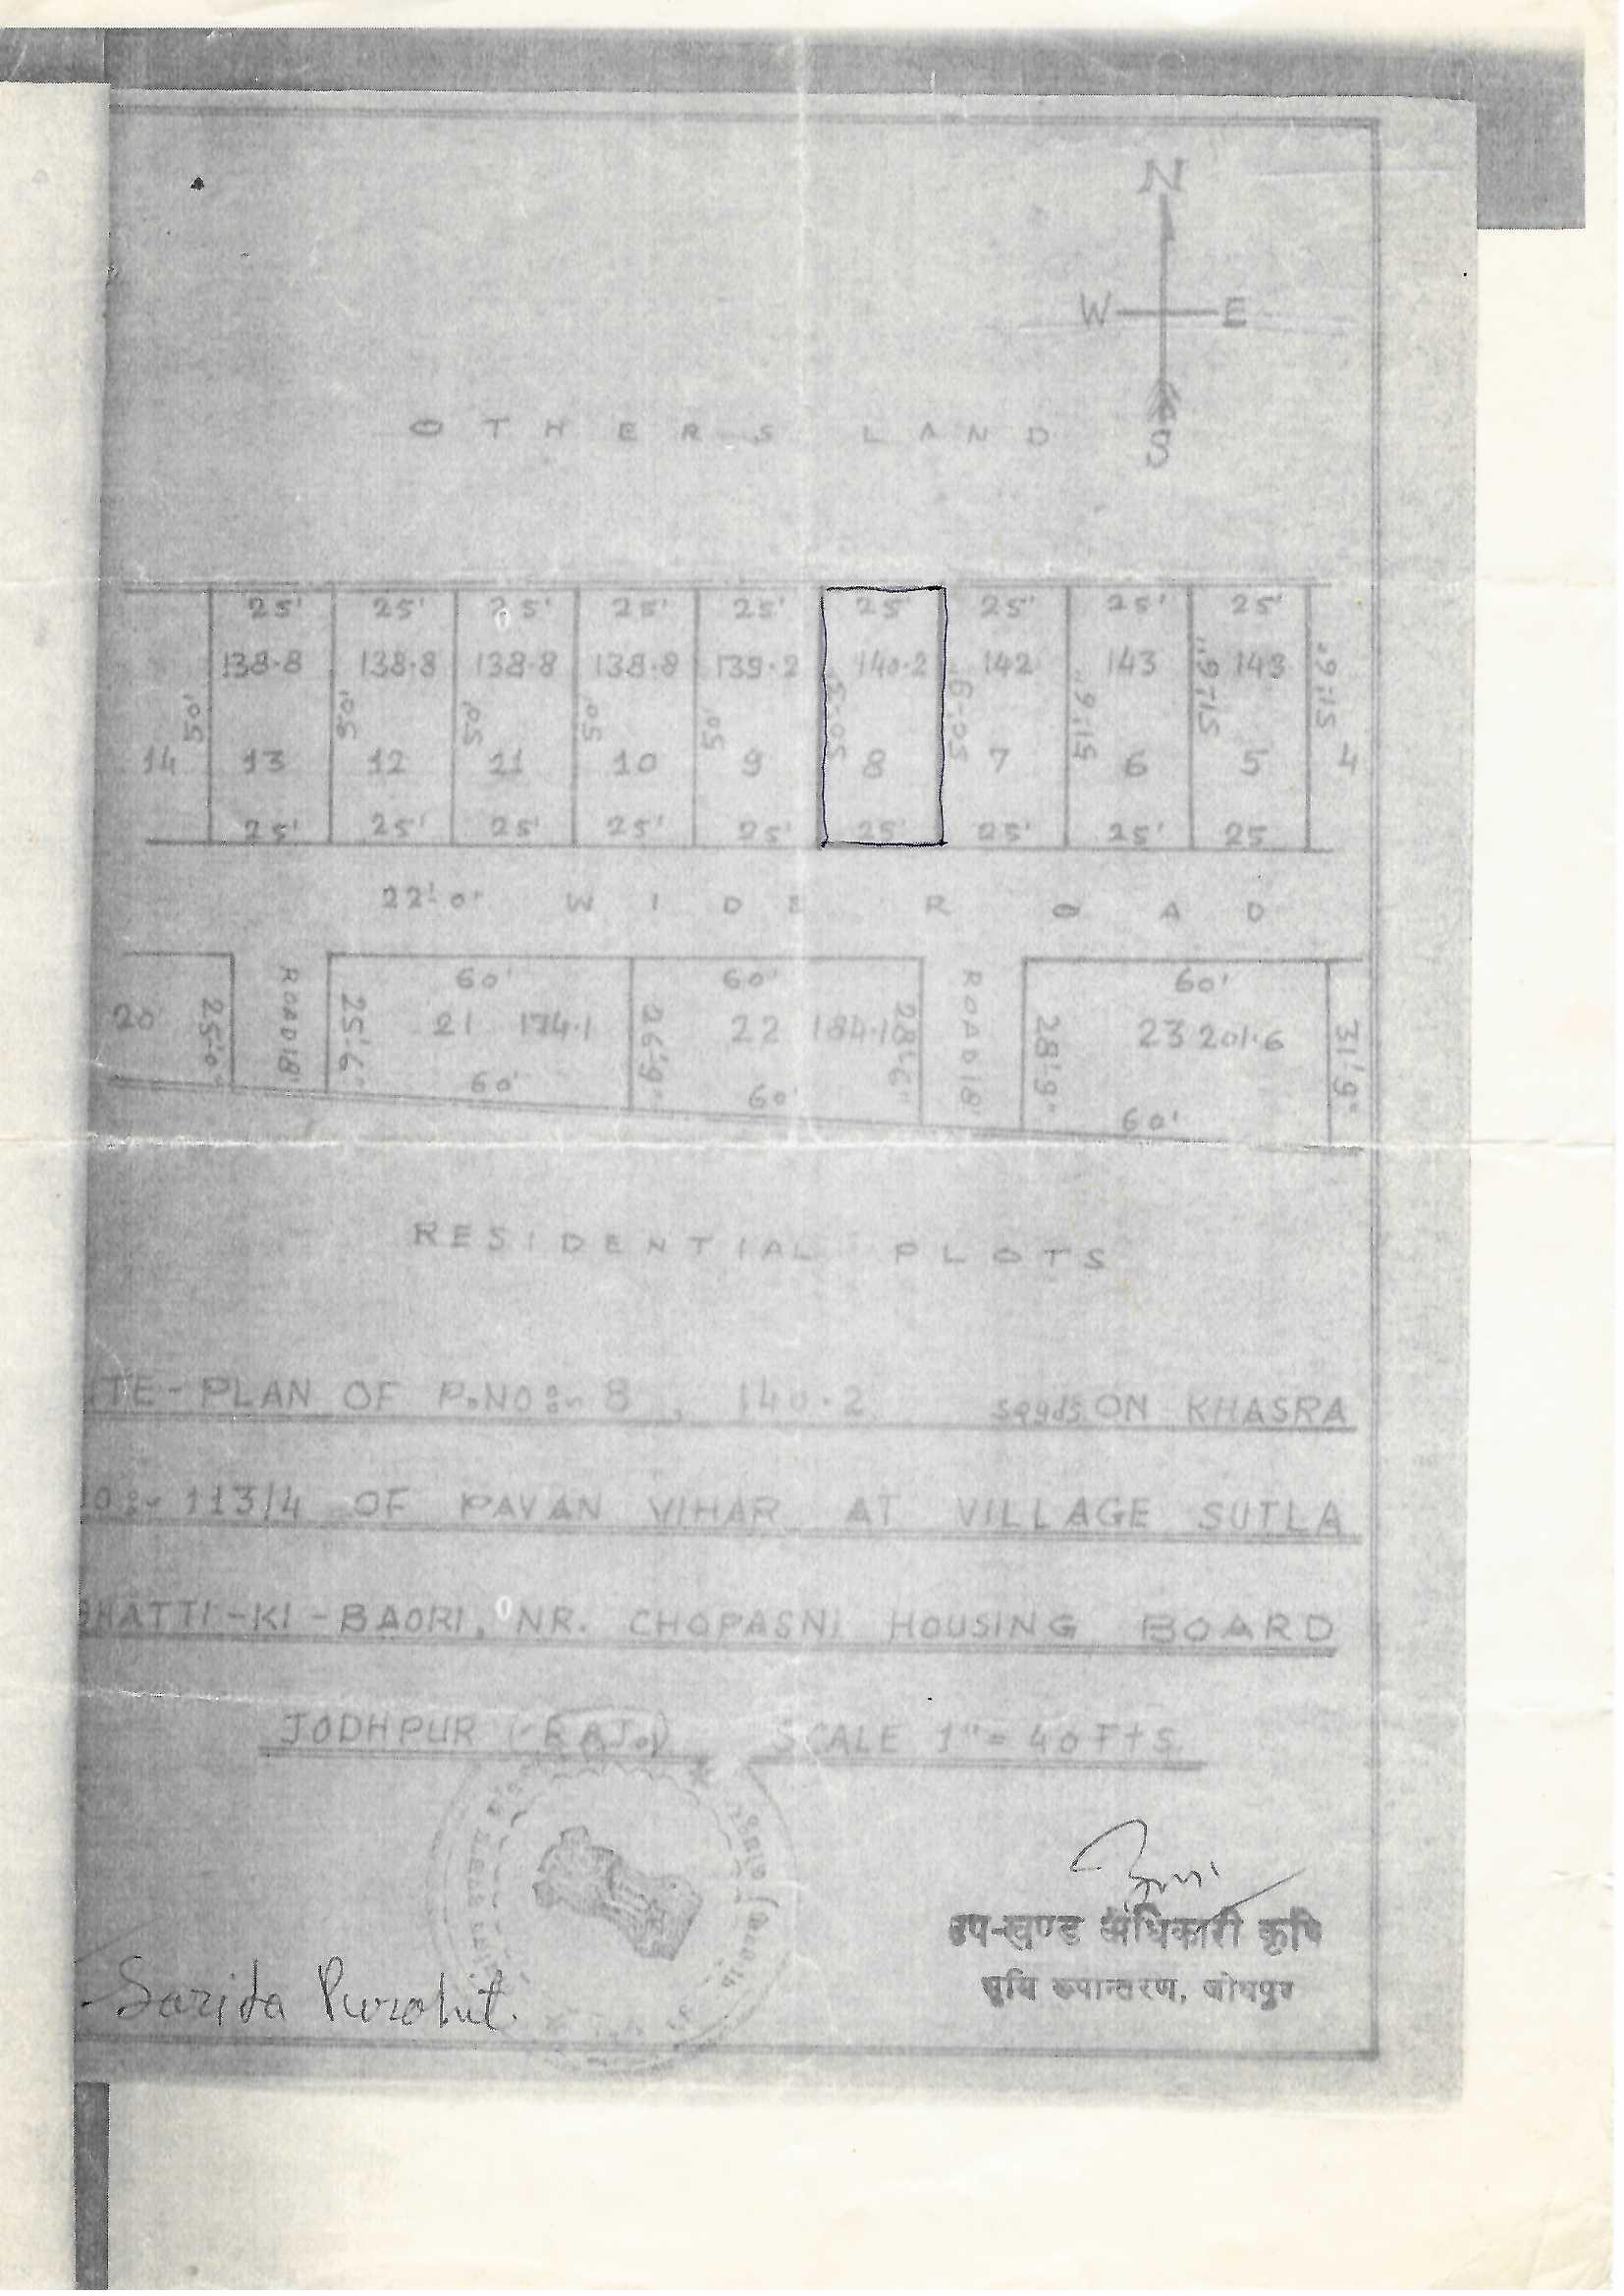 N
W E
S
OTHERS LAND
25' 25' 25' 25' 25' 25' 25' 25' 25'
138.8 138.8 138.8 138.8 139.2 140.2 142 143 143
50' 50' 50' 50' 50' 50-3 50-9" 51'.6" 51'.6" 51'.6"
14 13 12 11 10 9 8 7 6 5 4
25' 25' 25' 25' 25' 25' 25' 25' 25
22'-0" WIDE ROAD
60' 60' 60'
20 25'.0" ROAD 18' 25'.6" 21 174.1 26'.9" 22 184.1 28'.6" ROAD 18' 28'.9" 23 201.6 31'.9"
60' 60' 60'
RESIDENTIAL PLOTS
TE-PLAN OF P.NO:- 8, 140.2 sqyds ON KHASRA
O:- 113/4 OF PAVAN VIHAR AT VILLAGE SUTLA
BHATTI-KI-BAORI, NR. CHOPASNI HOUSING BOARD
JODHPUR (RAJ.) SCALE 1" = 40 Fts.
उप-खण्ड अधिकारी कृषि
भूमि रूपान्तरण, जोधपुर
Sarida Purohit.